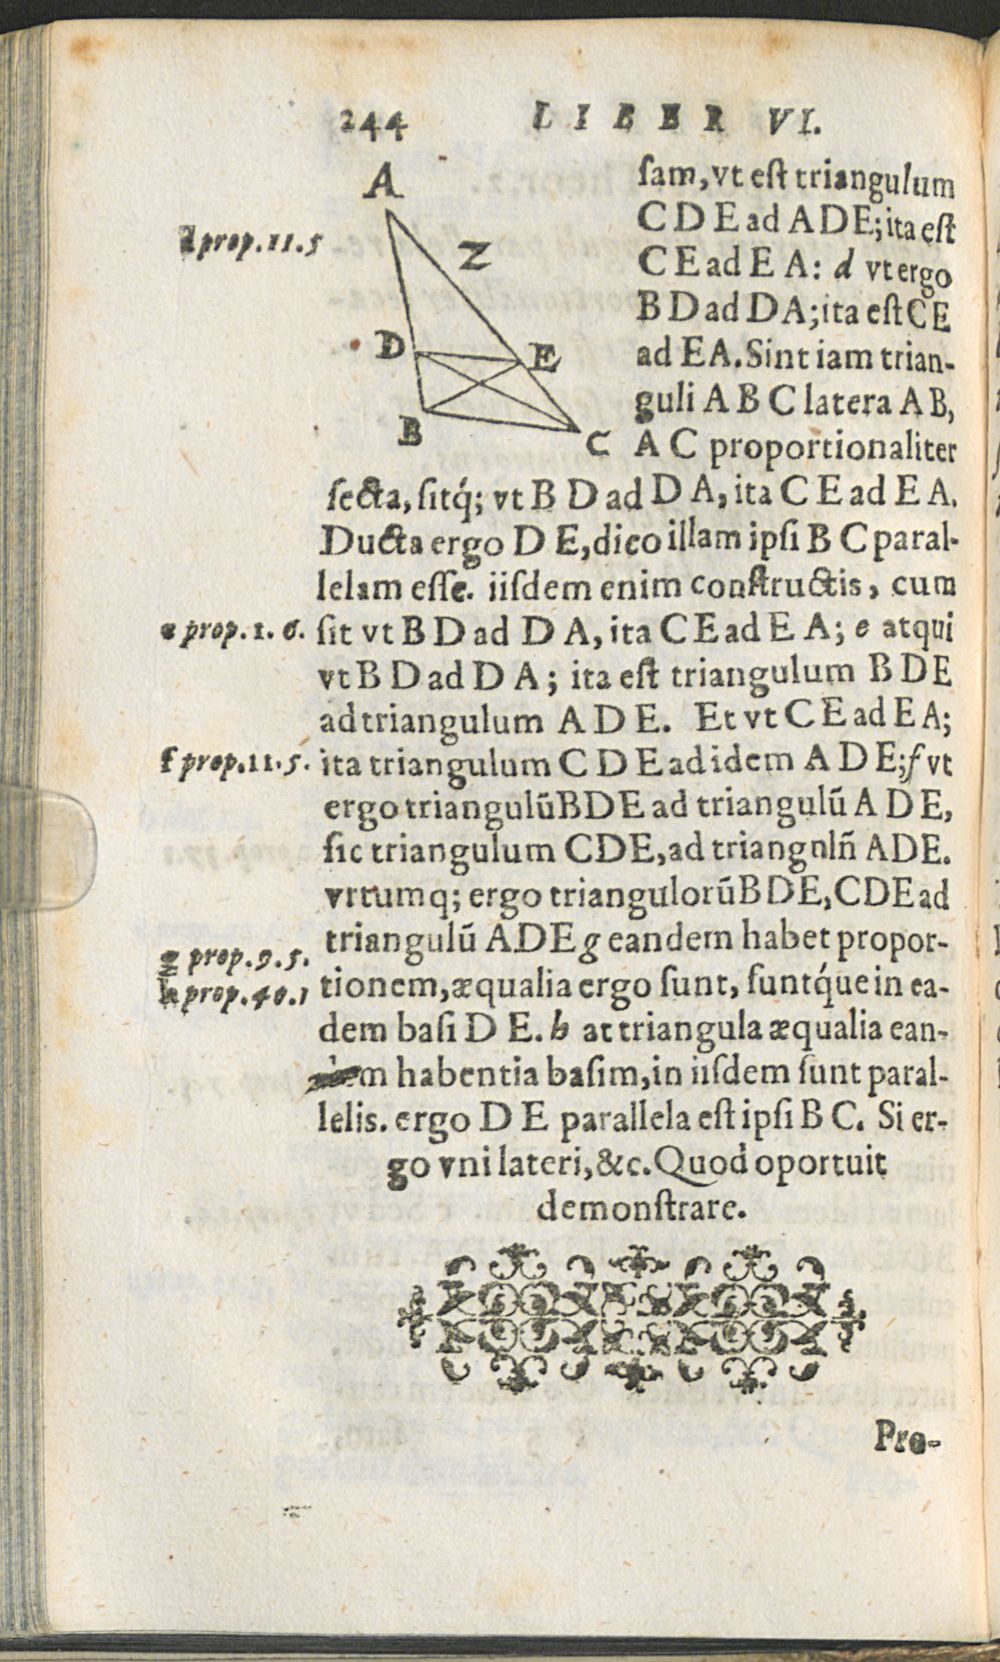 244 LIBER VI.
A
Z
D
E
B
C
ſam, vt eſt triangulum
C D E ad A D E; ita eſt
C E ad E A: d vt ergo
B D ad D A; ita eſt C E
ad E A. Sint iam trian-
guli A B C latera A B,
A C proportionaliter
ſecta, ſitq́; vt B D ad D A, ita C E ad E A.
Ducta ergo D E, dico illam ipſi B C paral-
lelam eſſe. iiſdem enim conſtructis, cum
ſit vt B D ad D A, ita C E ad E A; e atqui
vt B D ad D A; ita eſt triangulum B D E
ad triangulum A D E. Et vt C E ad E A;
ita triangulum C D E ad idem A D E; f vt
ergo triangulū BDE ad triangulū A D E,
ſic triangulum CDE, ad triangnlñ ADE.
vrtumq; ergo triangulorū BDE, CDE ad
triangulū ADE g eandem habet propor-
tionem, æqualia ergo ſunt, ſuntq́ue in ea-
dem baſi D E. h at triangula æqualia ean-
dem habentia baſim, in iiſdem ſunt paral-
lelis. ergo D E parallela eſt ipſi B C. Si er-
go vni lateri, &c. Quod oportuit
demonſtrare.
d prop. 11. 5
e prop. 1. 6.
f prop. 11. 5.
g prop. 9. 5.
h prop. 40. 1
Pro-